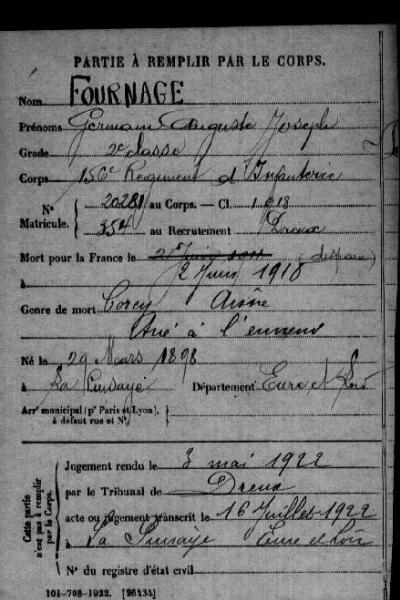 PARTIE À REMPLIR PAR LE CORPS.
Nom FOURNAGE
Prénoms Germain Auguste Joseph
Grade 2e classe
Corps 156e Régiment d'Infanterie
N° Matricule. { 20281 au Corps. — Cl. 1918
354 au Recrutement Dreux
Mort pour la France le
2 Juin 1918
à Corcy Aisne
Genre de mort Tué à l'ennemi
Né le 29 Mars 1898
à La Puisaye Département Eure et Loir
Arr' municipal (p' Paris et Lyon), à défaut rue et N°
Cette partie n'est pas à remplir par le Corps.
Jugement rendu le 3 mai 1922
par le Tribunal de Dreux
acte ou jugement transcrit le 16 Juillet 1922
à La Puisaye Eure et Loir
N° du registre d'état civil
101-708-1922. [26434]